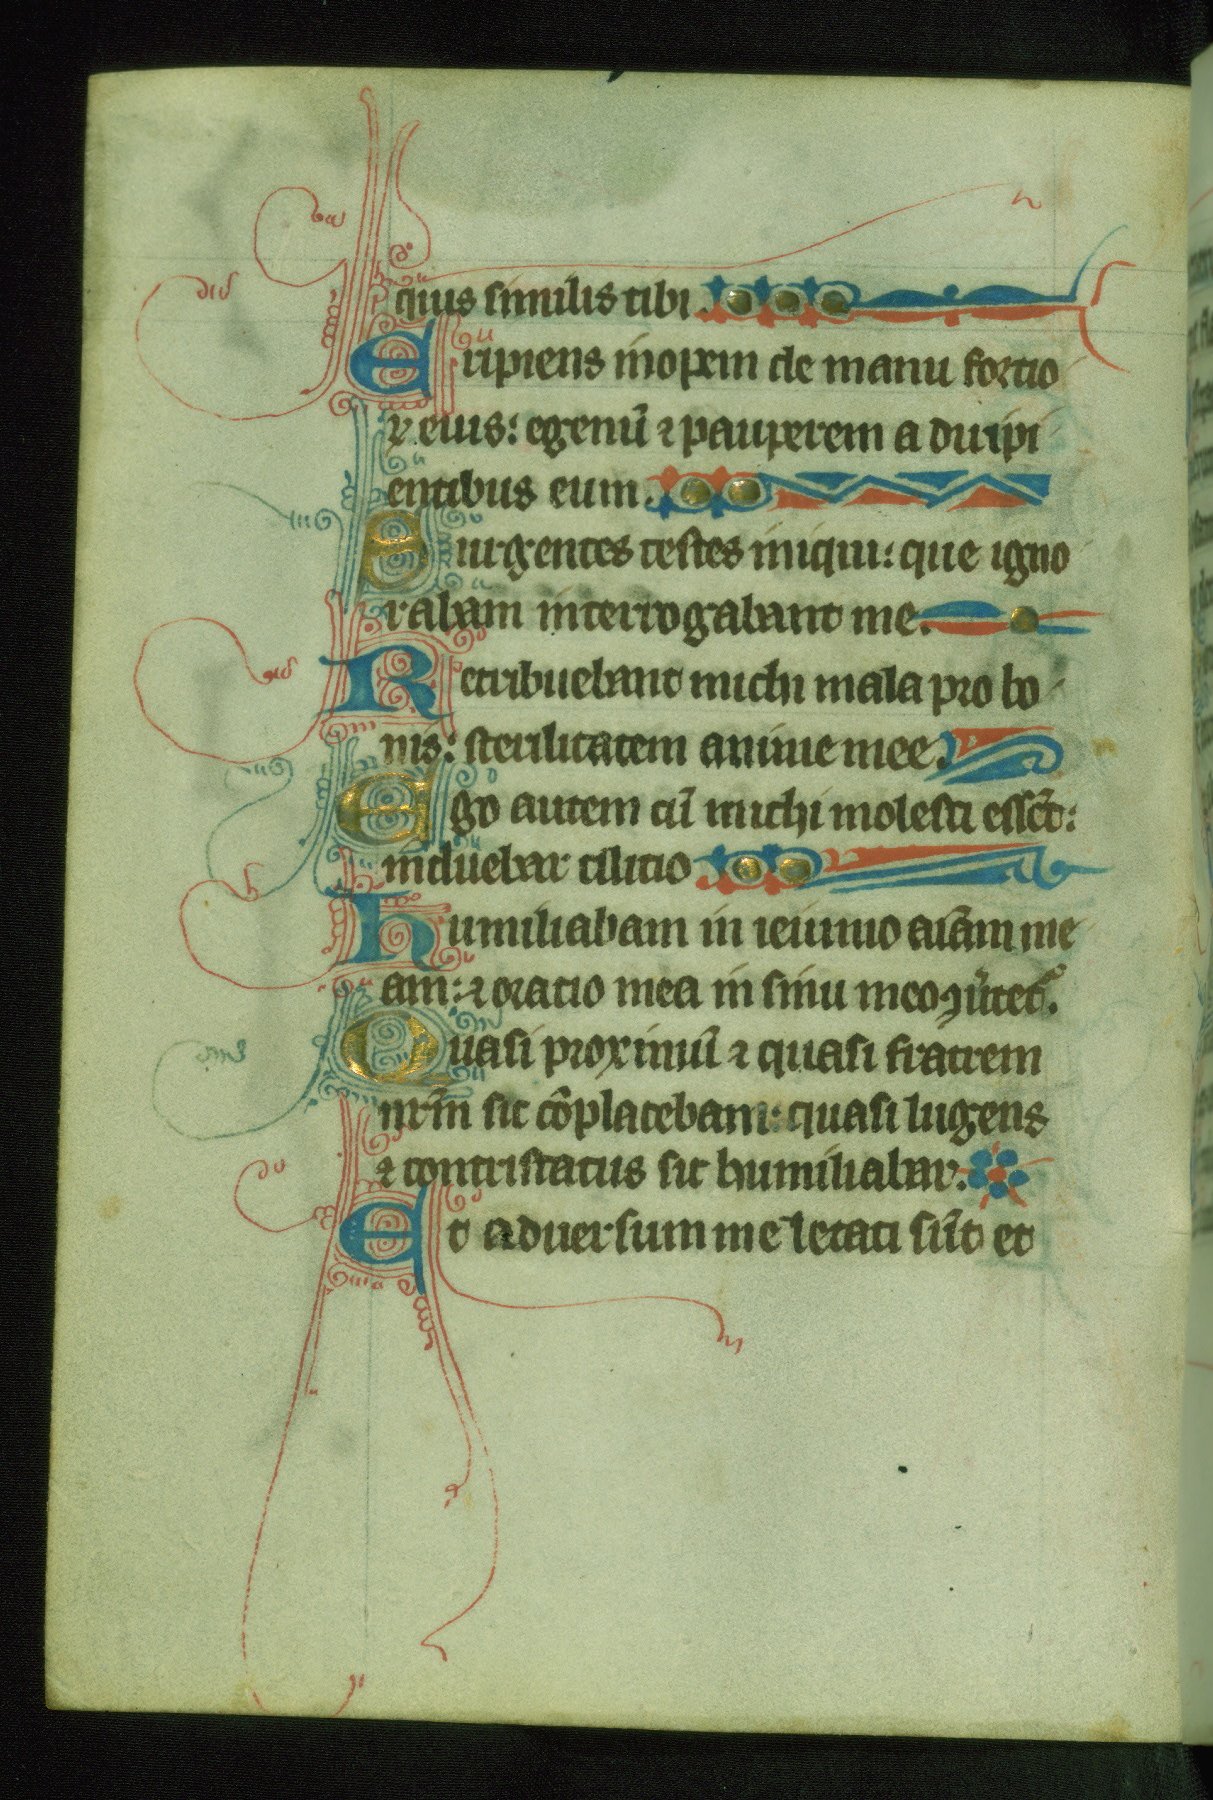 quis similis tibi.
Eripiens inopem de manu fortio
r eius: egenū ⁊ pauperem a diripi
entibus eum.
Surgentes testes iniqui: que igno
rabam interrogabant me.
Retribuebant michi mala pro bo
nis: sterilitatem anime mee.
Ego autem cū michi molesti essēt:
induebar cilicio
humiliabam in ieiunio aīam me
am: ⁊ oratio mea in sinu meo
Quasi proximū ⁊ quasi fratrem
nrm̄ sic cōplacebam: quasi lugens
⁊ contristatus sic humiliabar.
Et aduersum me letati sūt et